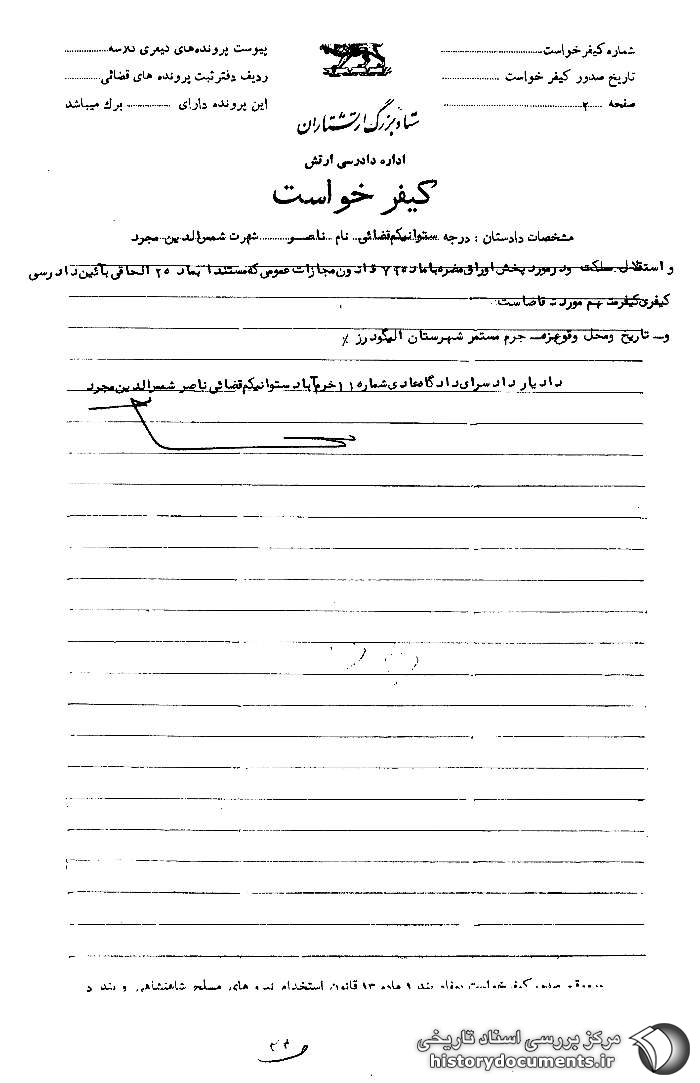 شماره کیفرخواست
تاریخ صدور کیفر خواست
صفحه ۲
پیوست پرونده‌های کیفری کلاسه
ردیف دفتر ثبت پرونده های قضائی
این پرونده دارای برگ میباشد
ستاد بزرگ ارتشتاران
اداره دادرسی ارتش
کیفر خواست
مشخصات دادستان : درجه ستوانیکم قضائی نام ناصر شهرت شمس‌الدین مجرد
و استقلال مملکت ودر مورد پخش اوراق مضره با ماده قانون مجازات عمومی که مستندا بماده ۲۵ الحاقی بآئین دادرسی
کیفری کیفر متهم مورد تقاضاست
و تاریخ ومحل وقوع جرم مستمر شهرستان الیگودرز ٪
دادیار دادسرای دادگاه عادی شماره ۱۱ خرم‌آباد ستوانیکم قضائی ناصر شمس‌الدین مجرد
صدور کیفرخواست بمفاد بند ۹ ماده ۱۳ قانون استخدام نیروهای مسلح شاهنشاهی و بند د
مرکز بررسی اسناد تاریخی
historydocuments.ir